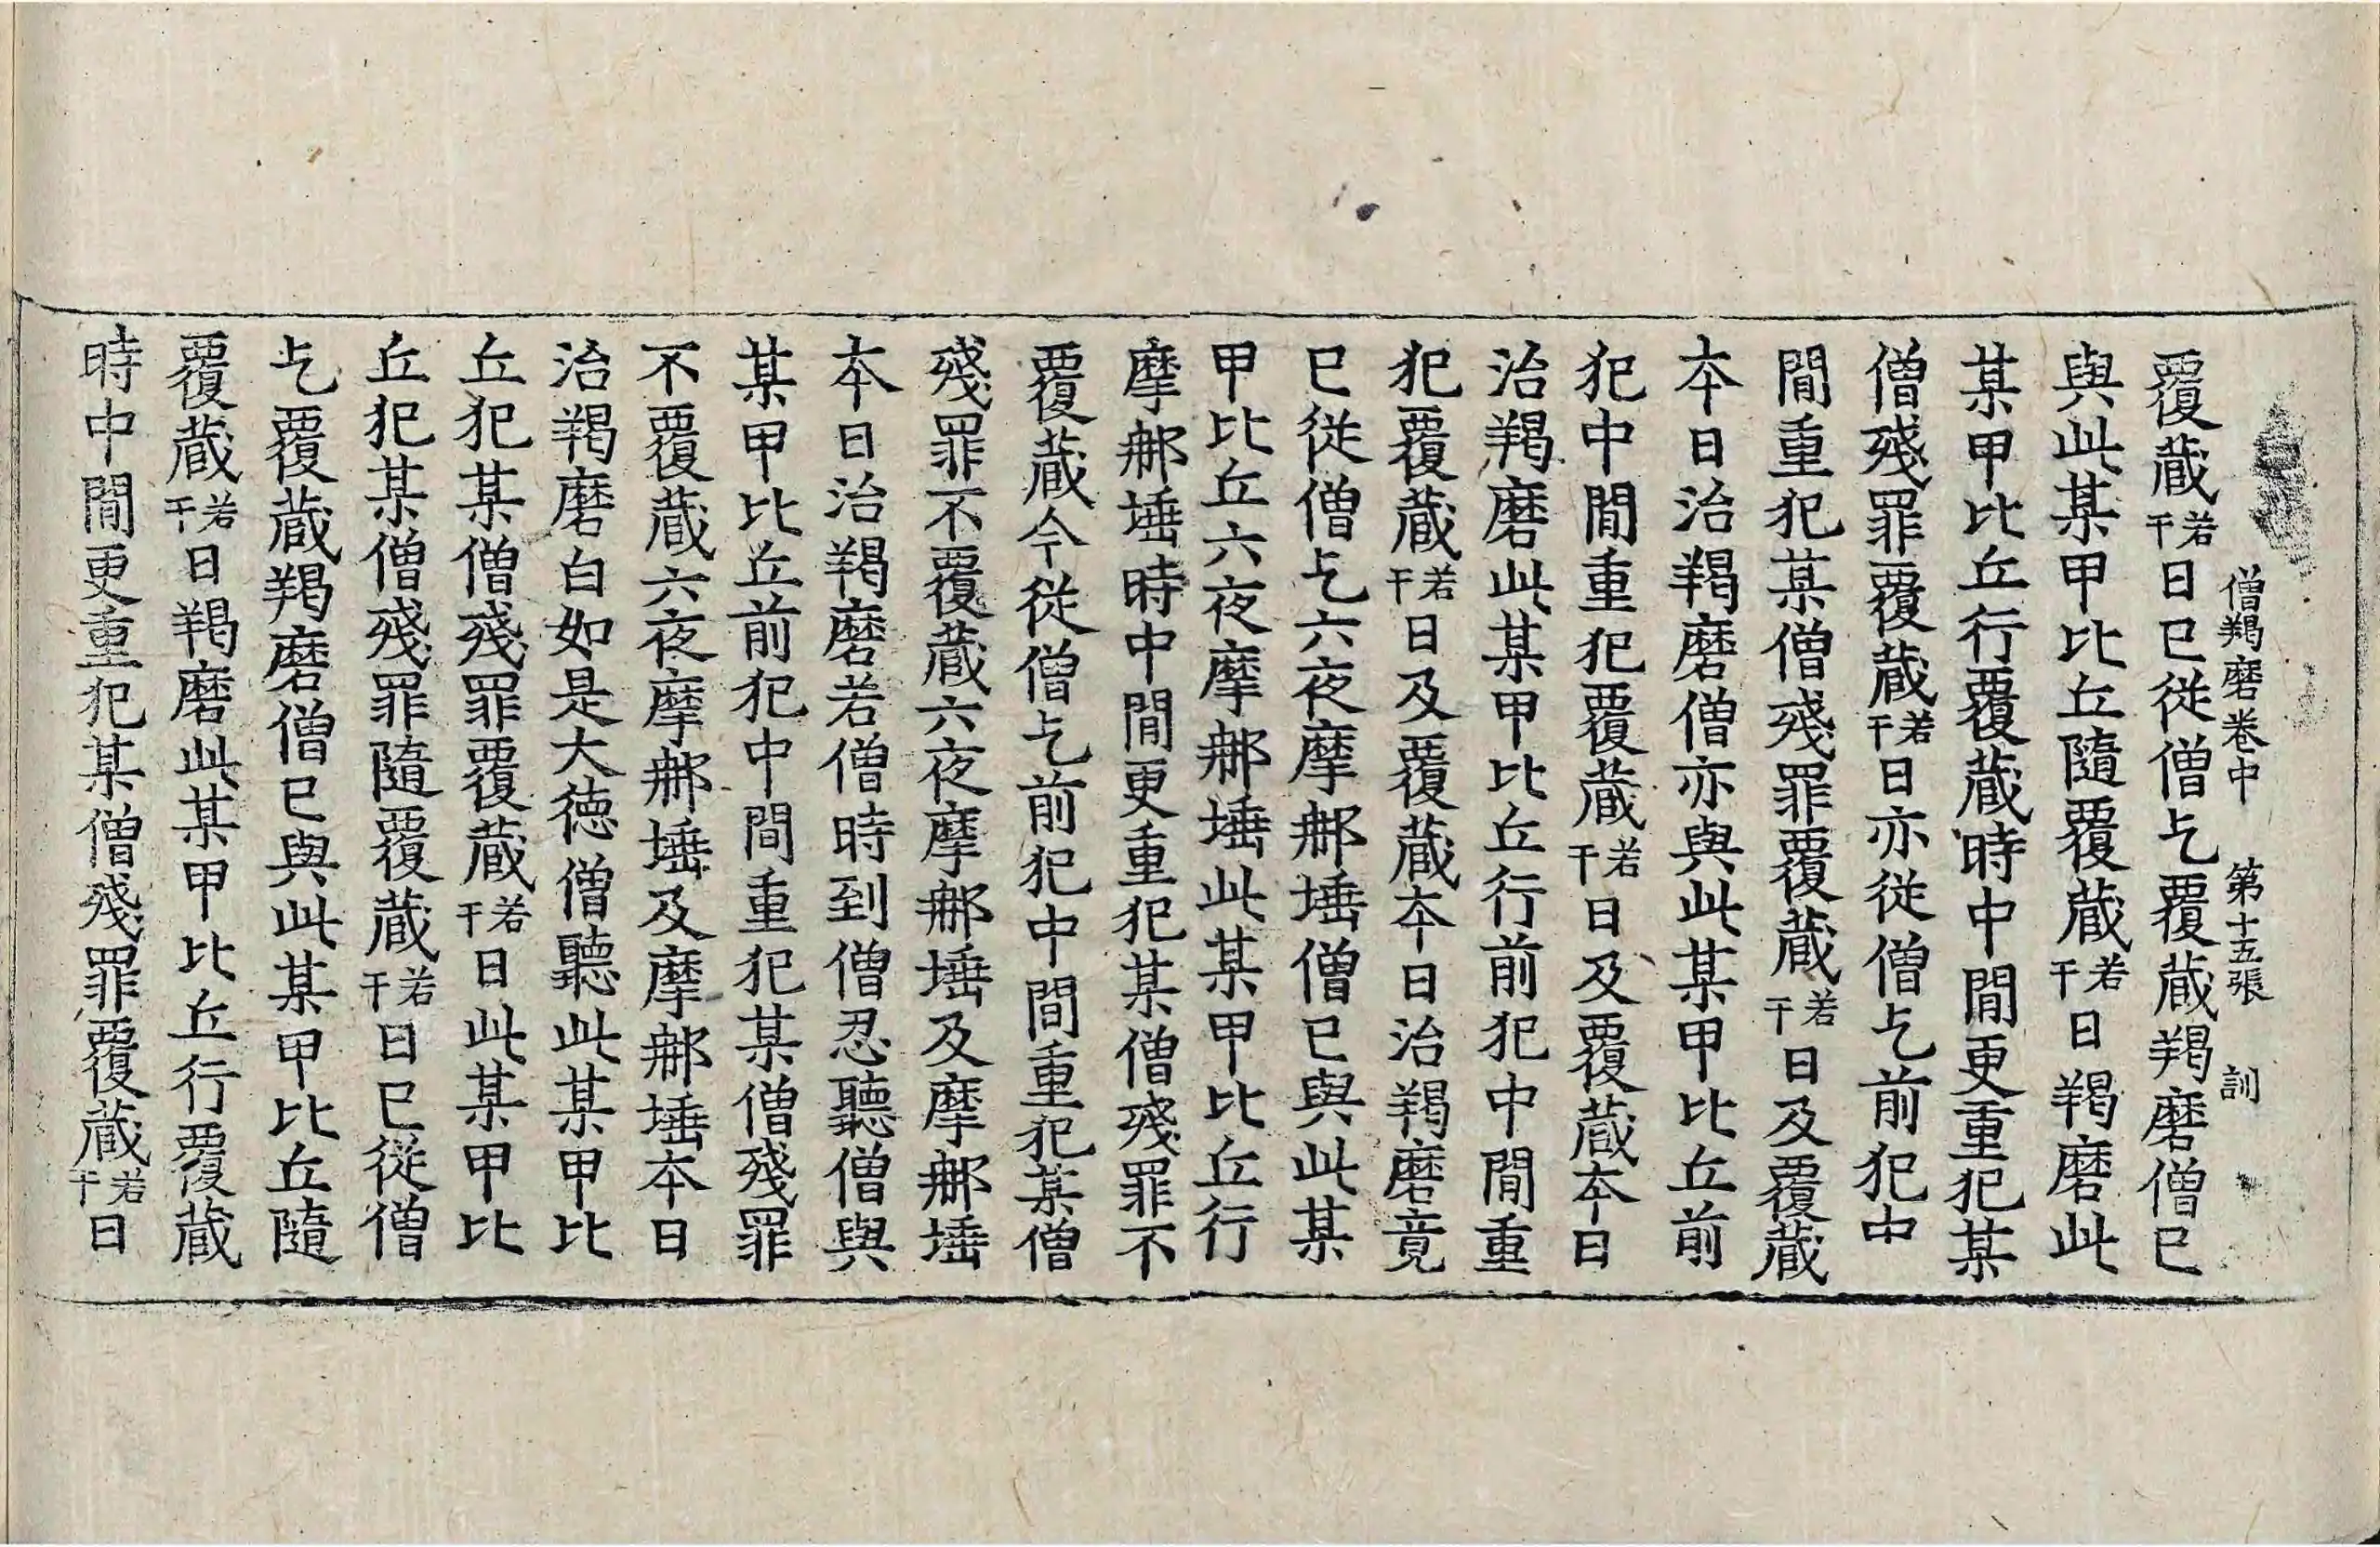 僧羯磨卷中 第十五張 訓
覆蔵若干日已從僧乞覆蔵羯磨僧已
與此某甲比丘隨覆蔵若干日羯磨此
某甲比丘行覆蔵時中間更重犯某
僧殘罪覆蔵若干日亦從僧乞前犯中
間重犯某僧殘罪覆蔵若干日及覆蔵
本日治羯磨僧亦與此某甲比丘前
犯中間重犯覆蔵若干日及覆蔵本日
治羯磨此某甲比丘行前犯中間重
犯覆蔵若干日及覆蔵本日治羯磨竟
已從僧乞六夜摩那埵僧已與此某
甲比丘六夜摩那埵此某甲比丘行
摩那埵時中間更重犯某僧殘罪不
覆蔵今從僧乞前犯中間重犯某僧
殘罪不覆蔵六夜摩那埵及摩那埵
本日治羯磨若僧時到僧忍聽僧與
某甲比丘前犯中間重犯某僧殘罪
不覆蔵六夜摩那埵及摩那埵本日
治羯磨白如是大德僧聽此某甲比
丘犯某僧殘罪覆蔵若干日此某甲比
丘犯某僧殘罪隨覆蔵若干日已從僧
乞覆蔵羯磨僧已與此某甲比丘隨
覆蔵若干日羯磨此某甲比丘行覆蔵
時中間更重犯某僧殘罪覆蔵若干日